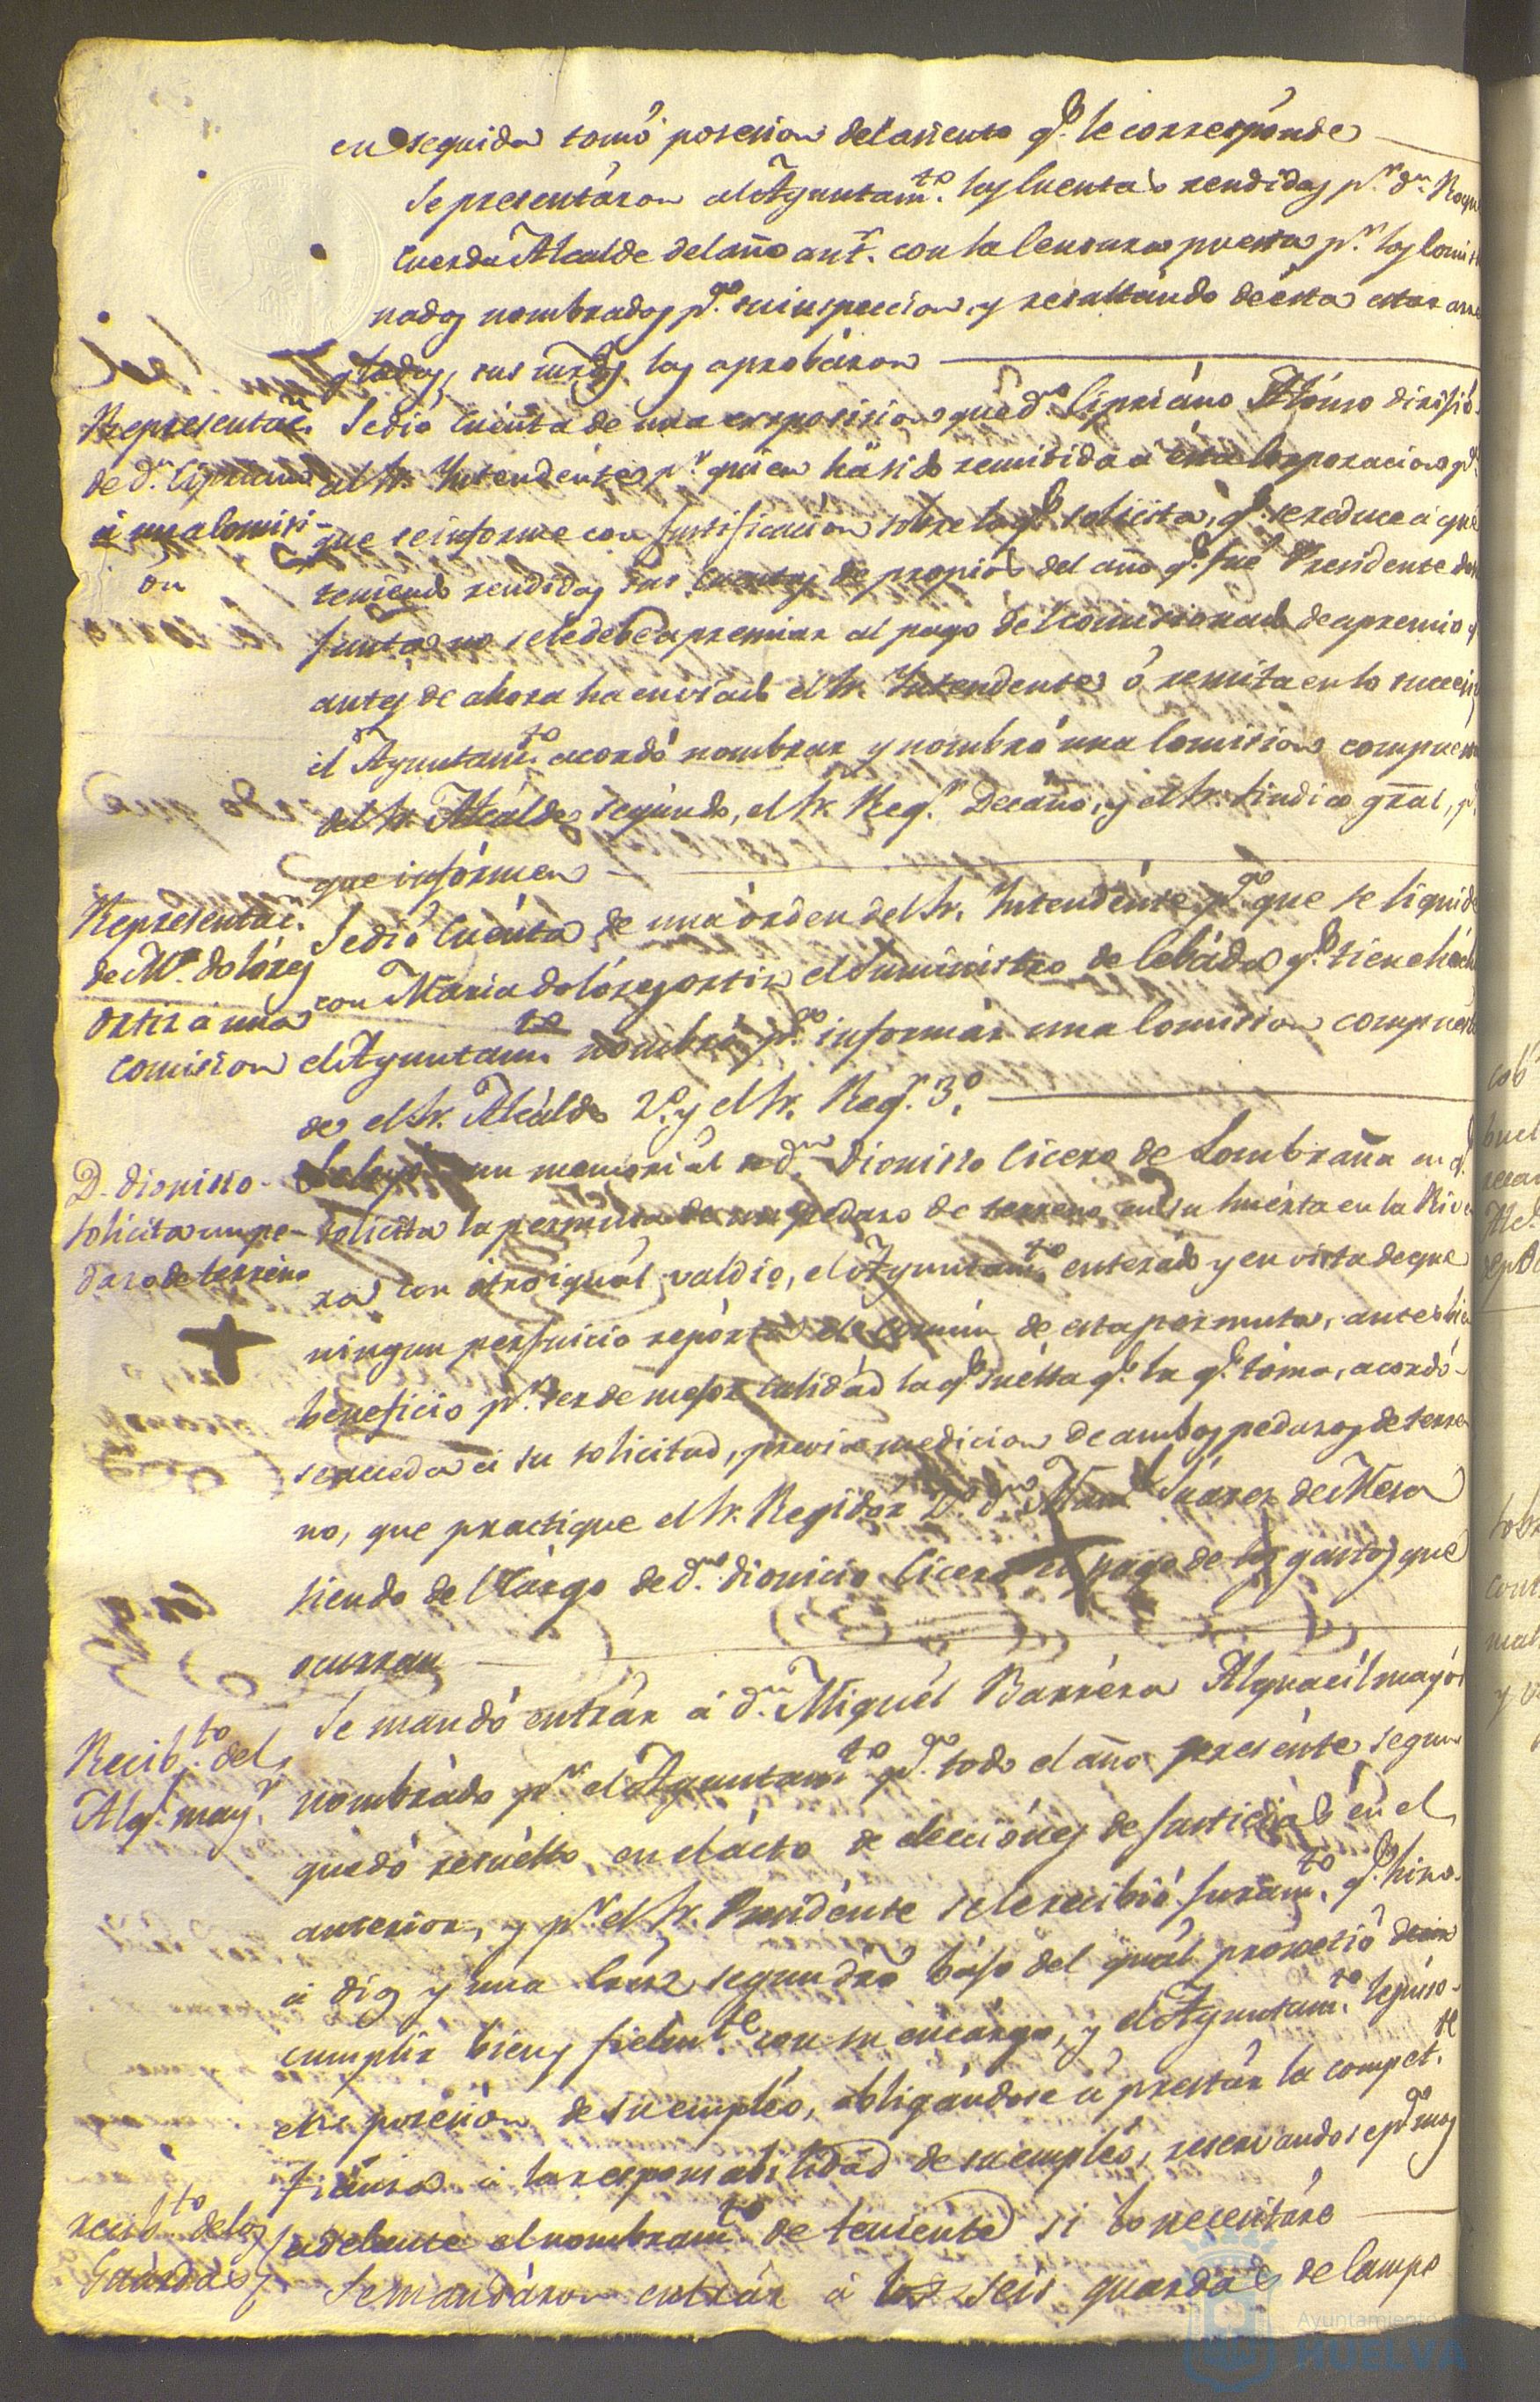 en seguida tomó posesion del asiento q.e le corresponde
Se presentáron al Ayuntam.to las Cuentas rendidas p.r d.n Roque
Cuerda Alcalde del año ant.r con la Censura puesta p.r los Comisio
nados nombrados p.a su inspeccion, y resultando de ésta estar arre
gladas, sus mrds las aprobáron
Representac.n
de d.n Cipriano
á una Comisi-
ón
Se dió Cuenta de una exposicion que d.n Cipriáno Alónso dirijió
al Sr. Intendénte p.r quien há sido remitida á ésta Corporacion p.a
que se informe con justificación sobre lo q.e solicita, q.e se reduce á que
teniendo rendidas sus Cuentas de propios del año q.e fué Presidente de la
Junta no se le debe apremiar al pago del comisionado de apremio q.
antes de ahora ha enviado el Sr. Intendente ó remita en lo succesivo
el Ayuntam.to acordó nombrar y nombró una Comision compuesta
del Sr. Alcalde segundo, el Sr. Reg.r Decáno, y el Sr. Sindico gral, p.a
que infórmen
Representac.n
de M.a dolóres
Ortiz á una
comision
Se dió Cuénta de una órden del Sr. Intendénte p.a que se liquide
con Maria dolóres ortiz el Suministro de Cebáda q.e tiene hécho
el Ayuntam.to nombró p.a informár una Comision compuesta
de el Sr. Alcálde 2.o y el Sr. Reg.r 3.o
D. dionisio
solicita un pe-
daso de terréno
Se leyó un memoriál de d.n Dionisio Cicero de Lombraña en q.e
solicita la permuta de un pedaso de terreno en su huérta en la Rive
ra con otro iguál valdio, el Ayuntam.to enterádo y en vista de que
ningun perjuicio repórta el común de esta permuta, antes bien
beneficio p.r ser de mejor calidád la q.e suélta q.e la q.e tóma, acordó
se acceda á su solicitud, previa medicion de ambos pedasos de terre
no, que practique el Sr. Regidór D.o d.n Man.l Suárez de Mesa
siendo del Cárgo de d.n dionicio Cicero el pago de los gastos que
ocurran
Recib.to del
Alg.l may.r
Se mandó entrár á d.n Miguél Barréra Alguacíl mayór
nombrádo p.r el Ayuntam.to p.a todo el año presénte segun
quedó resuélto en el ácto de elecciónes de Justicias en el
anterior, y p.r el Sr. Presidénte se le recibió juram.to q.e hizo
á dios y una Crúz segun dro bájo del quál prometió
cumplir bien y fielm.te con su encárgo, y el Ayuntam.to le púso
en posesión de su empléo, obligándose á prestár la compet.te
fiánza á la responsabilidád de su empléo, reservandose p.a mas
adelante el nombram.to de teniente si lo necesitáre
recib.to de los
Guárdas
Se mandáron entrár á los seis guardas de Campo
Ayuntamiento
HUELVA